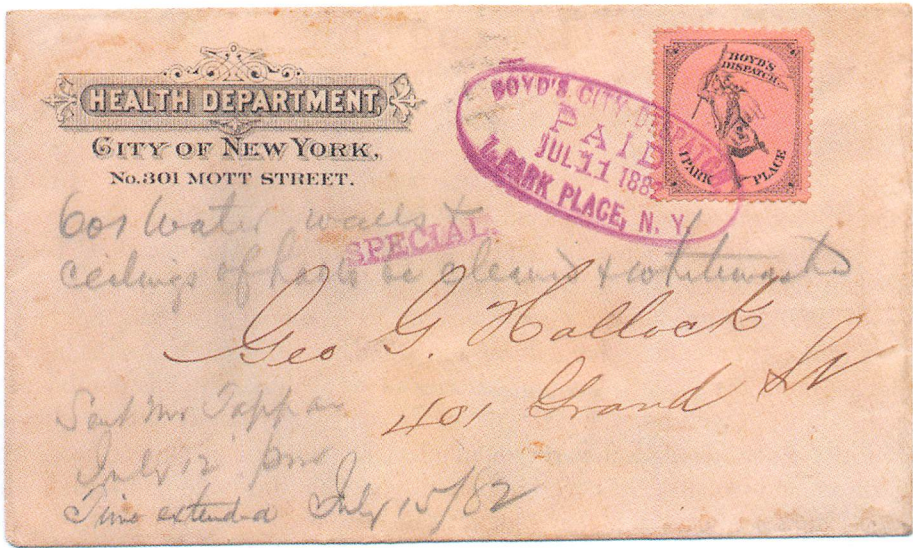 HEALTH DEPARTMENT,
CITY OF NEW YORK,
No. 301 MOTT STREET.
BOYD'S CITY DISPATCH
PAID
JUL 11 188
1 PARK PLACE, N.Y.
BOYD'S
DISPATCH
1 PARK PLACE
601 Water walls &
SPECIAL.
ceilings of halls be cleaned & whitewashed
Geo G. Hallock
401 Grand St
Sent Mr Tappan
July 12
Time extended July 15/82